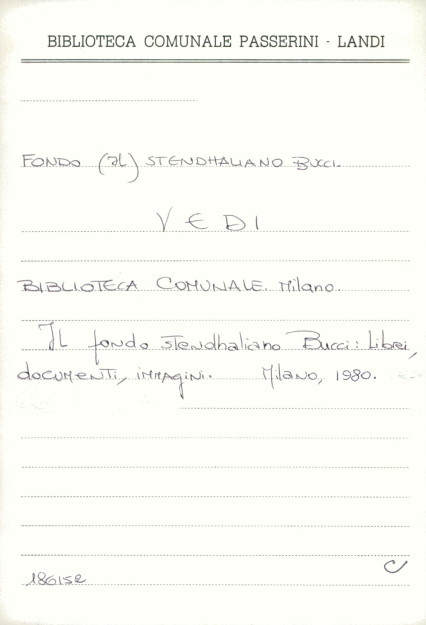 BIBLIOTECA COMUNALE PASSERINI - LANDI
FONDO (IL) STENDHALIANO BUCCI.
VEDI
BIBLIOTECA COMUNALE. Milano.
Il fondo stendhaliano Bucci: libri,
documenti, immagini. Milano, 1980.
186152